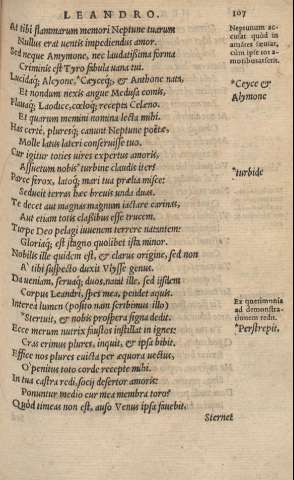 LEANDRO. 107
At tibi flammarum memori Neptune tuarum
Nullus erat uentis impediendus amor.
Sed neque Amymone, nec laudatißima forma
Criminis est Tyro fabula uana tui.
Lucidaq́; Alcyone, *Cæyceq́;, & Anthone nata,
Et nondum nexis angue Medusa comis,
Flauaq́; Laodice, cœloq́; recepta Celeno.
Et quarum memini nomina lecta mihi.
Has certè, pluresq́; canunt Neptune poëtæ,
Molle latus lateri conseruisse tuo.
Cur igitur toties uires expertus amoris,
Assuetum nobis *turbine claudis iter?
Parce ferox, latoq́; mari tua prælia misce:
Seducit terras hæc breuis unda duas.
Te decet aut magnas magnum iactare carinas,
Aut etiam totis claßibus esse trucem.
Turpe Deo pelagi iuuenem terrere natantem:
Gloriaq́; est stagno quolibet ista minor.
Nobilis ille quidem est, & clarus origine, sed non
A' tibi suspecto ducit Vlysse genus.
Da ueniam, seruaq́; duos, natat ille, sed ijsdem
Corpus Leandri, spes mea, pendet aquis.
Interea lumen (posito nam scribimus illo)
*Stertuit, & nobis prospera signa dedit.
Ecce merum nutrix faustos instillat in ignes:
Cras erimus plures, inquit, & ipsa bibit.
Effice nos plures euicta per æquora uectus,
O' penitus toto corde recepte mihi.
In tua castra redi, socij desertor amoris:
Ponuntur medio cur mea membra toro?
Quòd timeas non est, auso Venus ipsa fauebit.
Sternet
Neptunum ac-
cusat quòd in
amātes sæuiat,
cùm ipse sit a-
moribus affectus.
*Ceyce &
Alymone
*turbide
Ex querimonia
ad demonstra-
tionem redit.
*Perstrepit.